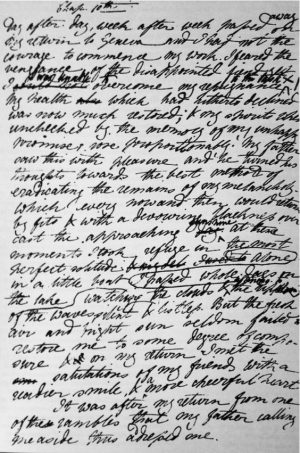 Chap. 10th
away
Day after day, week after week passed on
my return to Geneva and I had not the
courage to commence my work. I feared the
vengeance of the disappointed fiend, but
I was unable to overcome my repugnance
My health which had hitherto declined
was now much restored; & my spirits when
unchecked by the memory of my unhappy
promise, rose proportionably. My father
saw this with pleasure and he turned his
thoughts towards the best method of
eradicating the remains of my melancholy
which every now and then would return
by fits & with a devouring blackness over
cast the approaching sunshine at these
moments I took refuge in the most
perfect solitude
in a little boat I passed whole days on
the lake watching the clouds
of the waves silent & listless. But the fresh
air and bright sun seldom failed to
restore me to some degree of compo
sure & on my return I met the
salutations of my friend with a
readier smile & a more cheerful heart
It was after my return from one
of these rambles that my father calling
me aside thus addressed me.